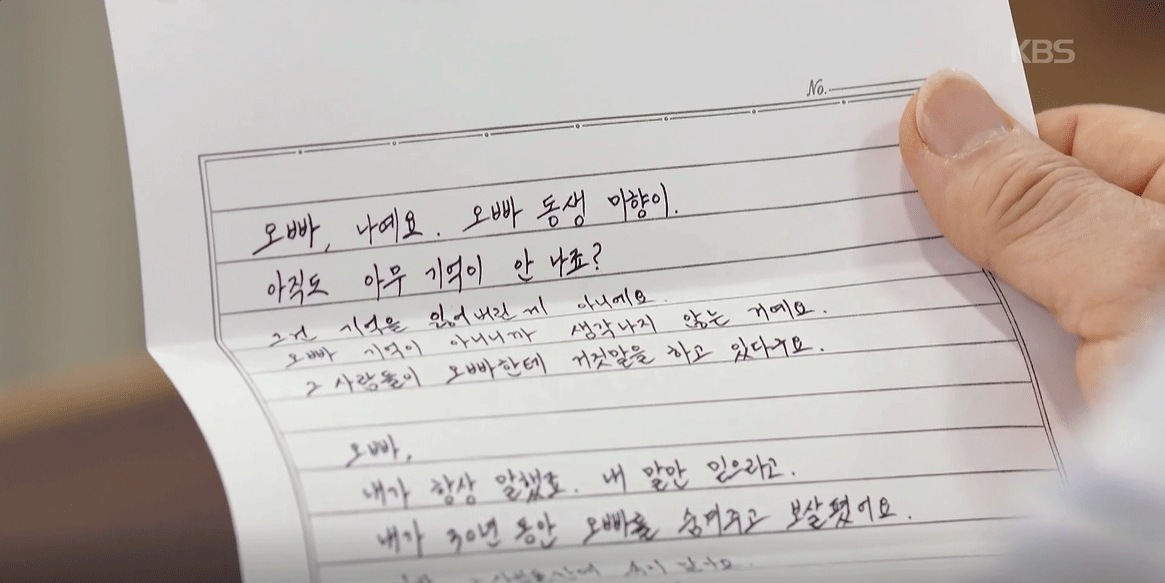 KBS
No.
오빠, 나예요. 오빠 동생 미향이.
아직도 아무 기억이 안 나죠?
그건 기억을 잃어버린 게 아니에요.
오빠 기억이 아니니까 생각나지 않는 거예요.
그 사람들이 오빠한테 거짓말을 하고 있다구요.
오빠,
내가 항상 말했죠. 내 말만 믿으라고.
내가 30년 동안 오빠를 숨겨주고 보살폈어요.